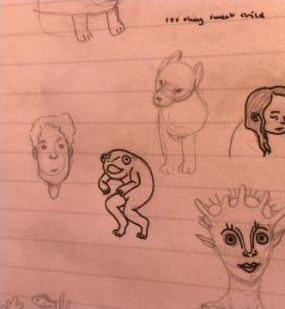 its okay sweet child